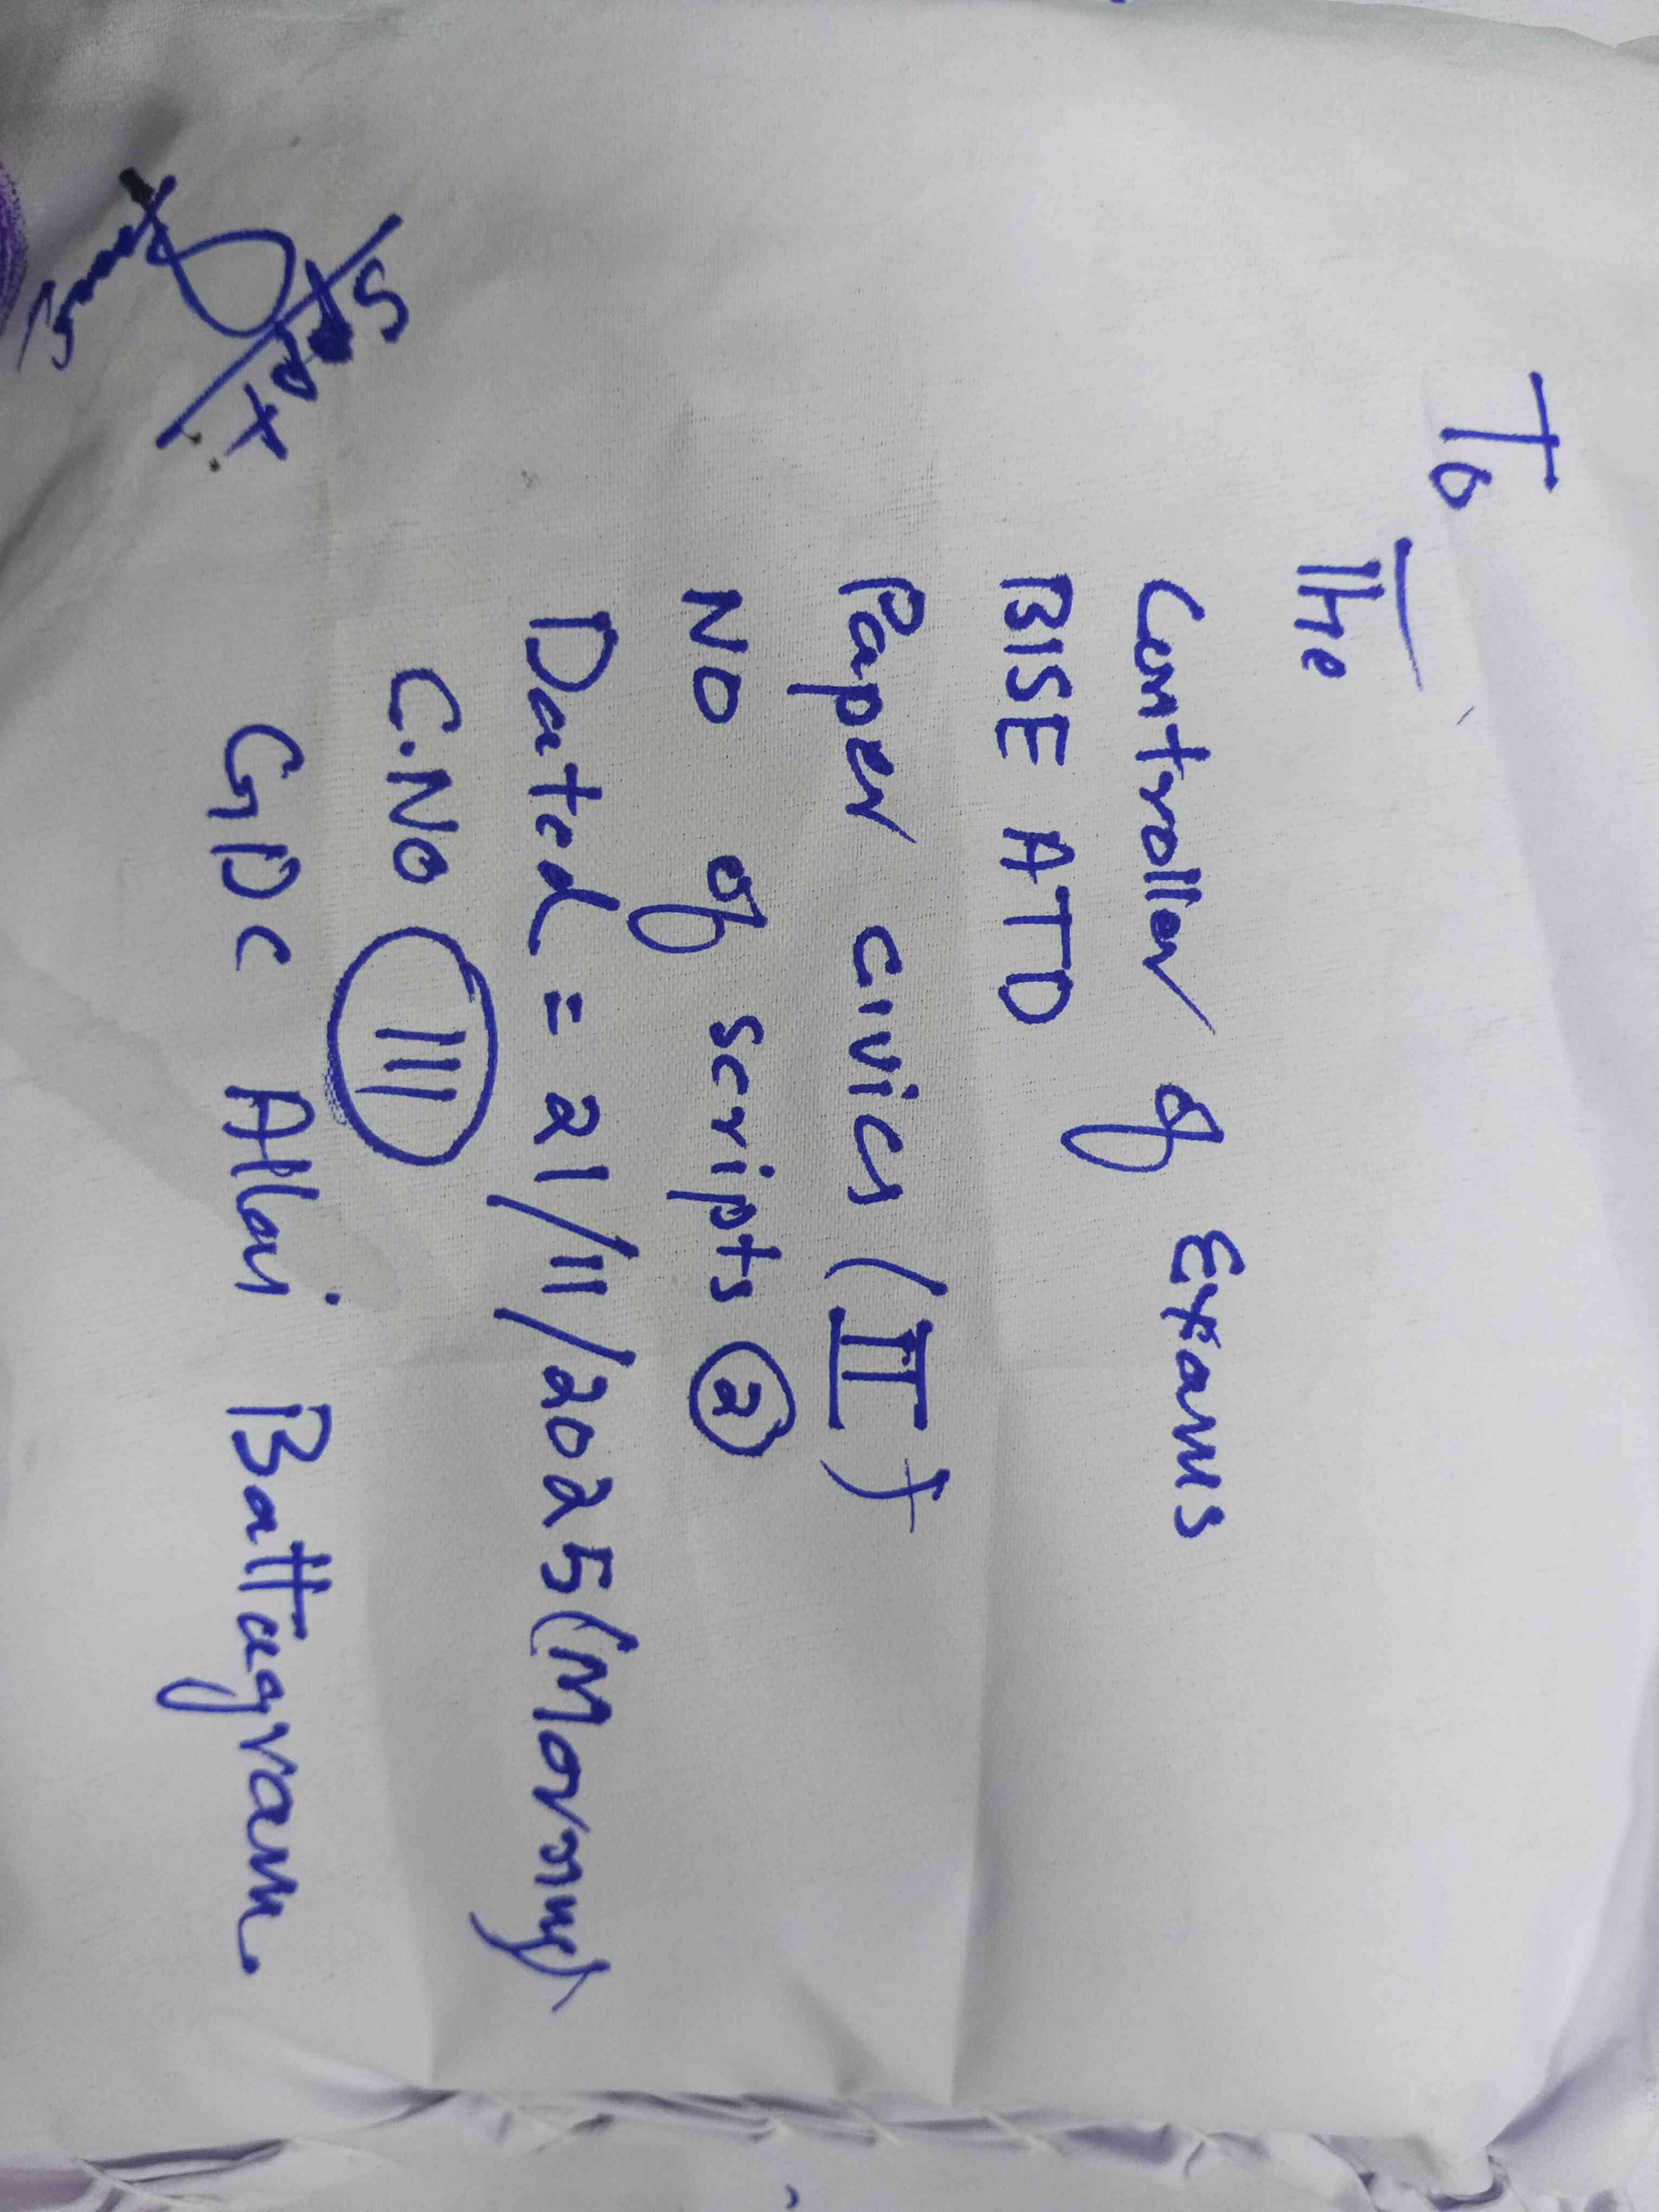 To
The
Controller of Exams
BISE ATD
Paper civics (II)
NO of scripts 2
Dated = 21/11/2025 (Morning)
C.NO 111
GDC Allai Battagram
Supdt